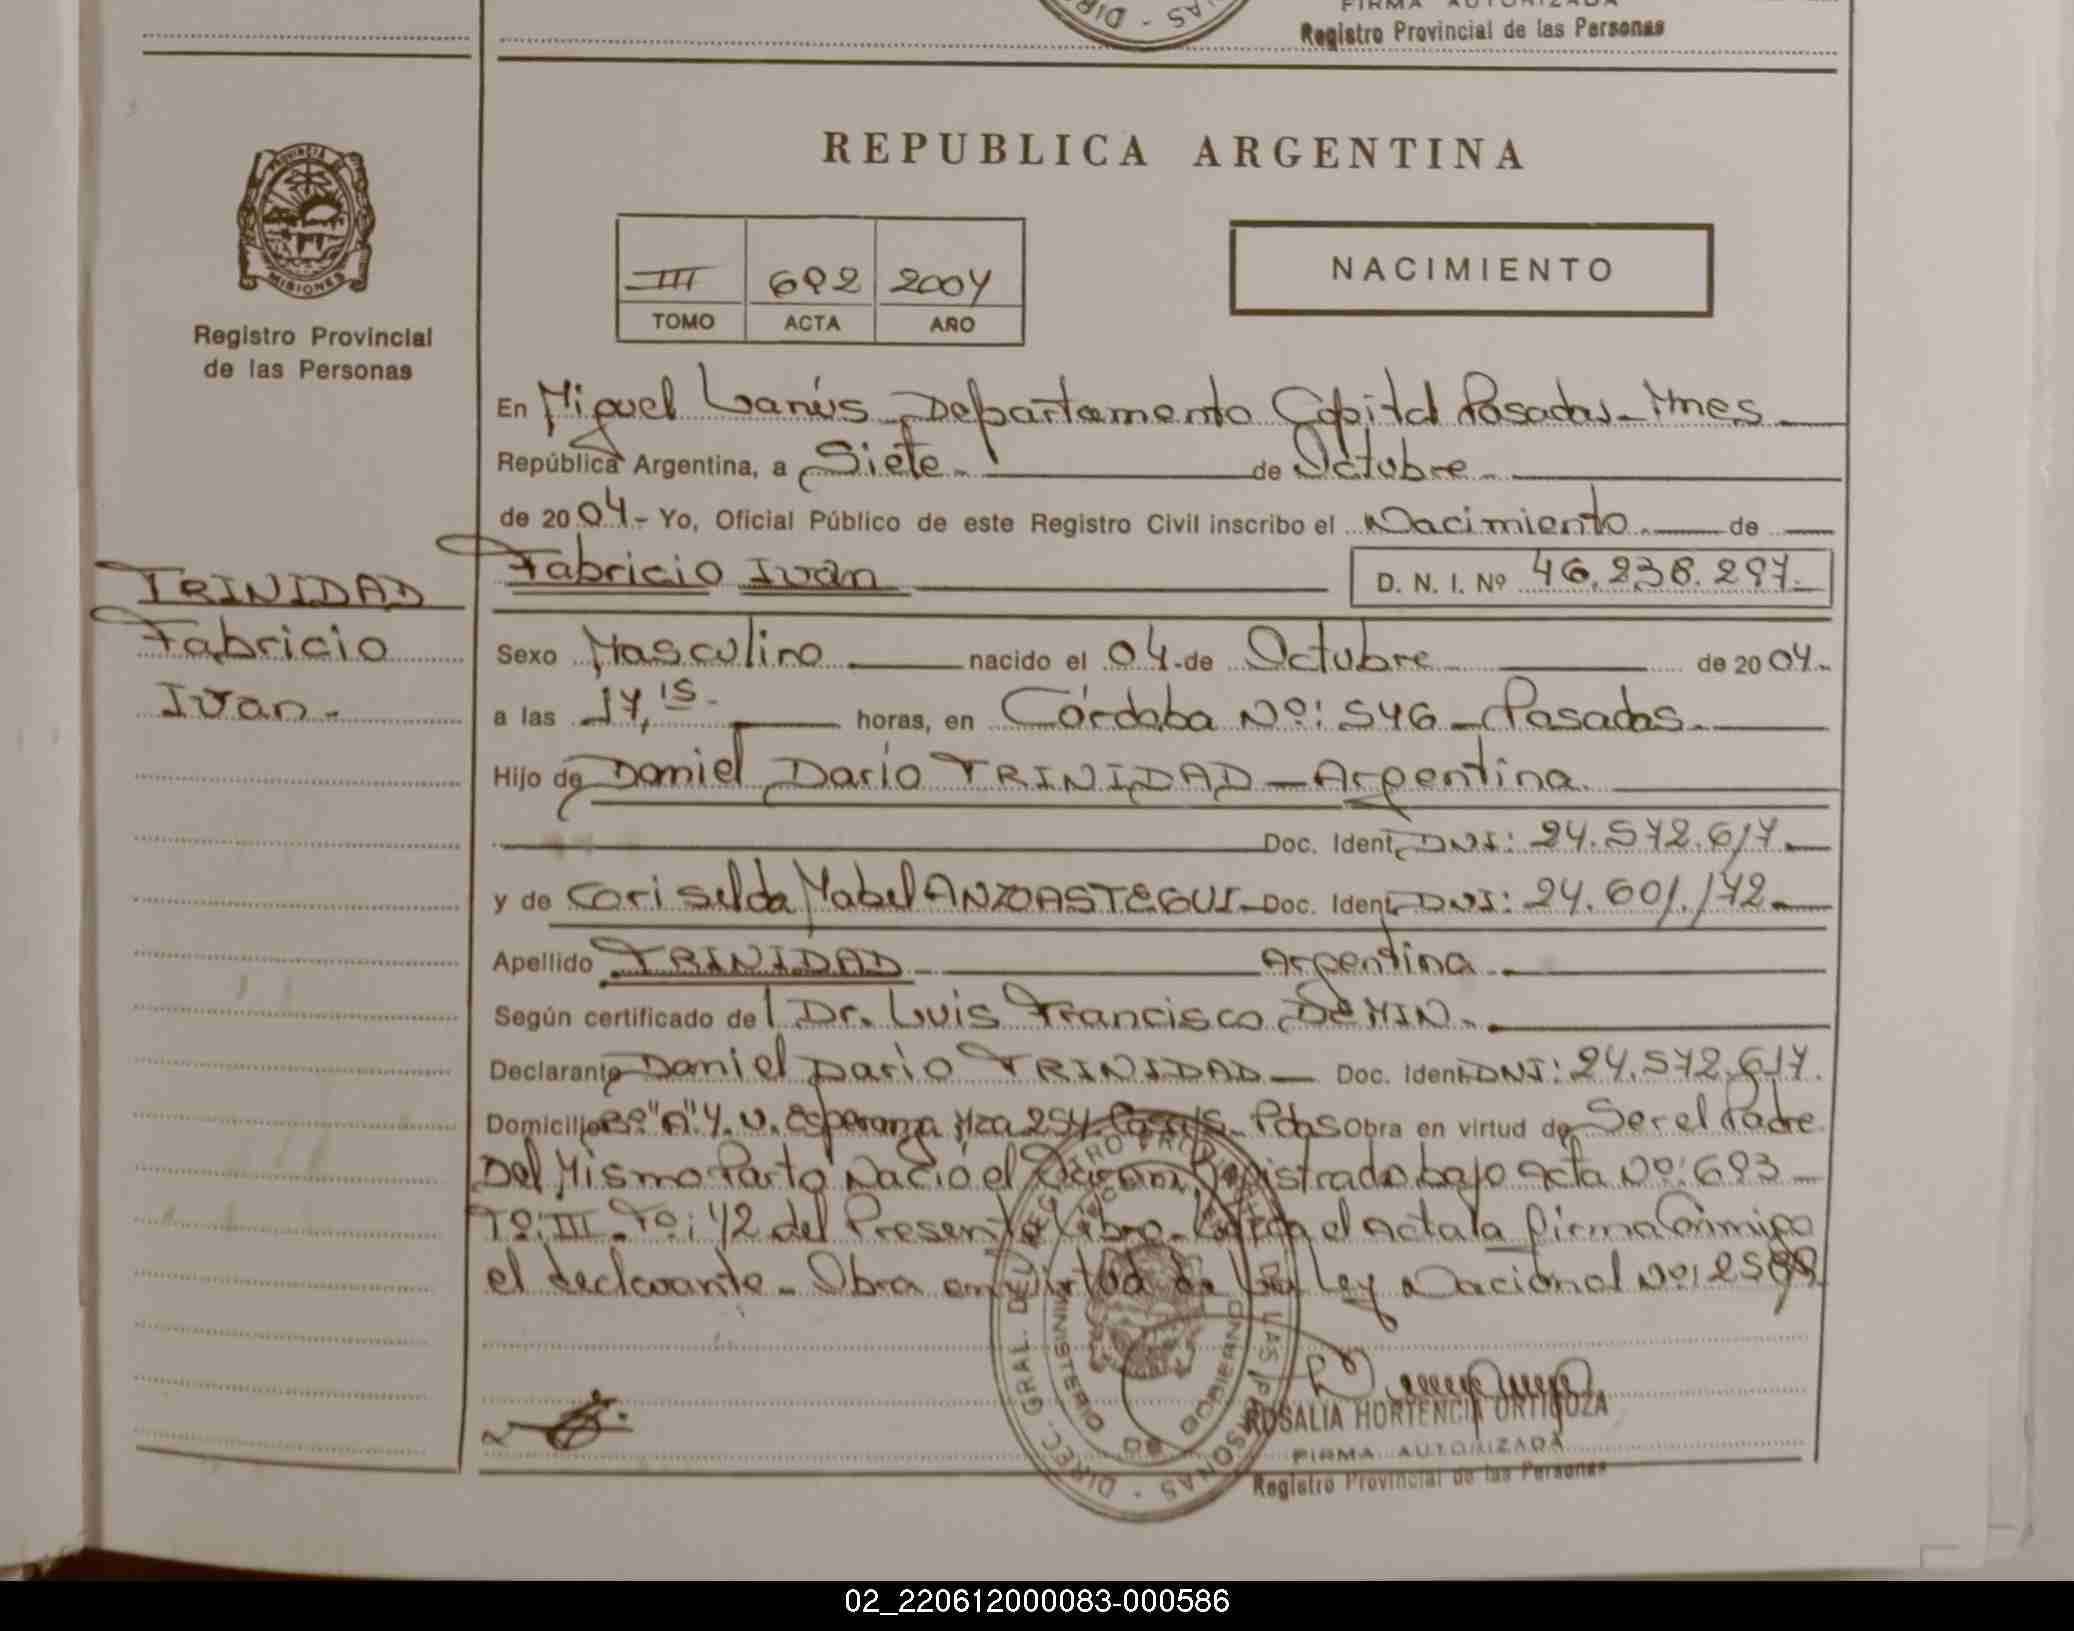 FIRMA AUTORIZADA
Registro Provincial de las Personas
REPUBLICA ARGENTINA
PROVINCIA DE
MISIONES
Registro Provincial
de las Personas
III 692 2004
TOMO ACTA AÑO
NACIMIENTO
En Miguel Lanús Departamento Capital Posadas - Mnes
República Argentina, a Siete de Octubre
de 2004 - Yo, Oficial Público de este Registro Civil inscribo el Nacimiento de
Fabricio Iván D. N. I. Nº 46.238.297.
TRINIDAD
Fabricio
Ivan.-
Sexo Masculino nacido el 04 de Octubre de 2004.
a las 17,15 horas, en Córdoba Nº: 546 - Posadas.
Hijo de Daniel Darío TRINIDAD - Argentina.
Doc. Ident. DNI: 24.572.617.
y de Mabel ANZOASTEGUI - Doc. Ident. DNI: 24.601.172
Apellido TRINIDAD Argentina
Según certificado del Dr. Luis Francisco DEMIN.
Declarante Daniel Darío TRINIDAD - Doc. Ident. DNI: 24.572.617.
Domicilio Bº "A" 4. N. Esperanza Mza 254 Pdas Obra en virtud de Ser el Padre
Del Mismo Parto Nació el registrado bajo acta Nº: 693
Tº: III - Fº: 42 del Presente Libro - el Acta la firma Conmigo
el declarante - Obra en virtud de la Ley Nacional Nº:
DIREC. GRAL. DEL REGISTRO PROVINCIAL DE LAS PERSONAS
MINISTERIO DE GOBIERNO
ROSALIA HORTENCIA ORTIGOZA
FIRMA AUTORIZADA
Registro Provincial de las Personas
02_220612000083-000586